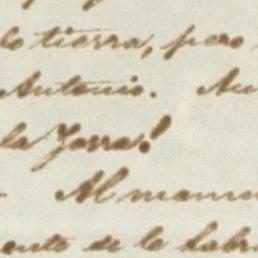 lo tierra, pero
Antonio. Au
la Zorra!
- Al mamu
ente de le labr